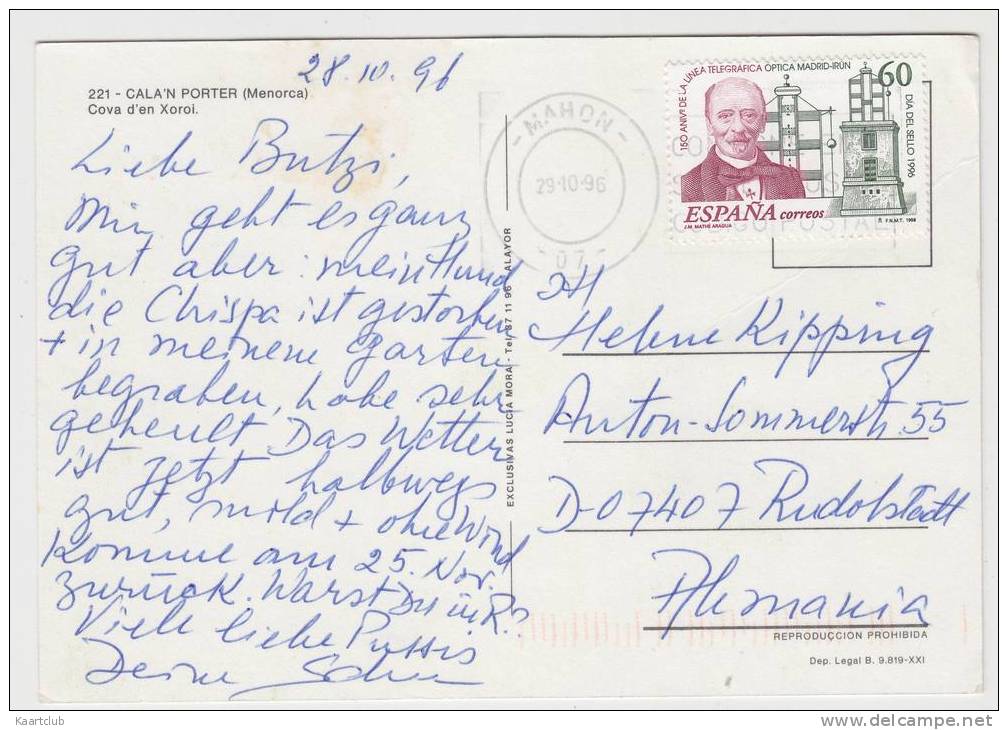 28.10.96
221 - CALA'N PORTER (Menorca)
Cova d'en Xoroi.
Liebe Butzi,
Mir geht es ganz
gut aber: mein Hund
die Chispa ist gestorben
+ in meinem Garten
begraben, habe sehr
geheult. Das Wetter
ist jetzt halbwegs
gut, mild + ohne Wind
Komme am 25. Nov.
zurück. Warst Du in R?
Viele liebe Pussis
Deine
EXCLUSIVAS LUCIA MORA - Tel. 37 11 96 - ALAYOR
MAHON
29-10-96
07
150 ANIVº DE LA LÍNEA TELEGRAFICA OPTICA MADRID-IRÚN
60
DIA DEL SELLO 1996
ESPAÑA correos
J.M. MATHE ARAGUA
F.N.M.T. 1996
POSTAL
Helene Kipping
Anton-Sommerstr. 55
D-07407 Rudolstadt
Alemania
REPRODUCCIÓN PROHIBIDA
Dep. Legal B. 9.819-XXI
Kaartclub
www.delcampe.net